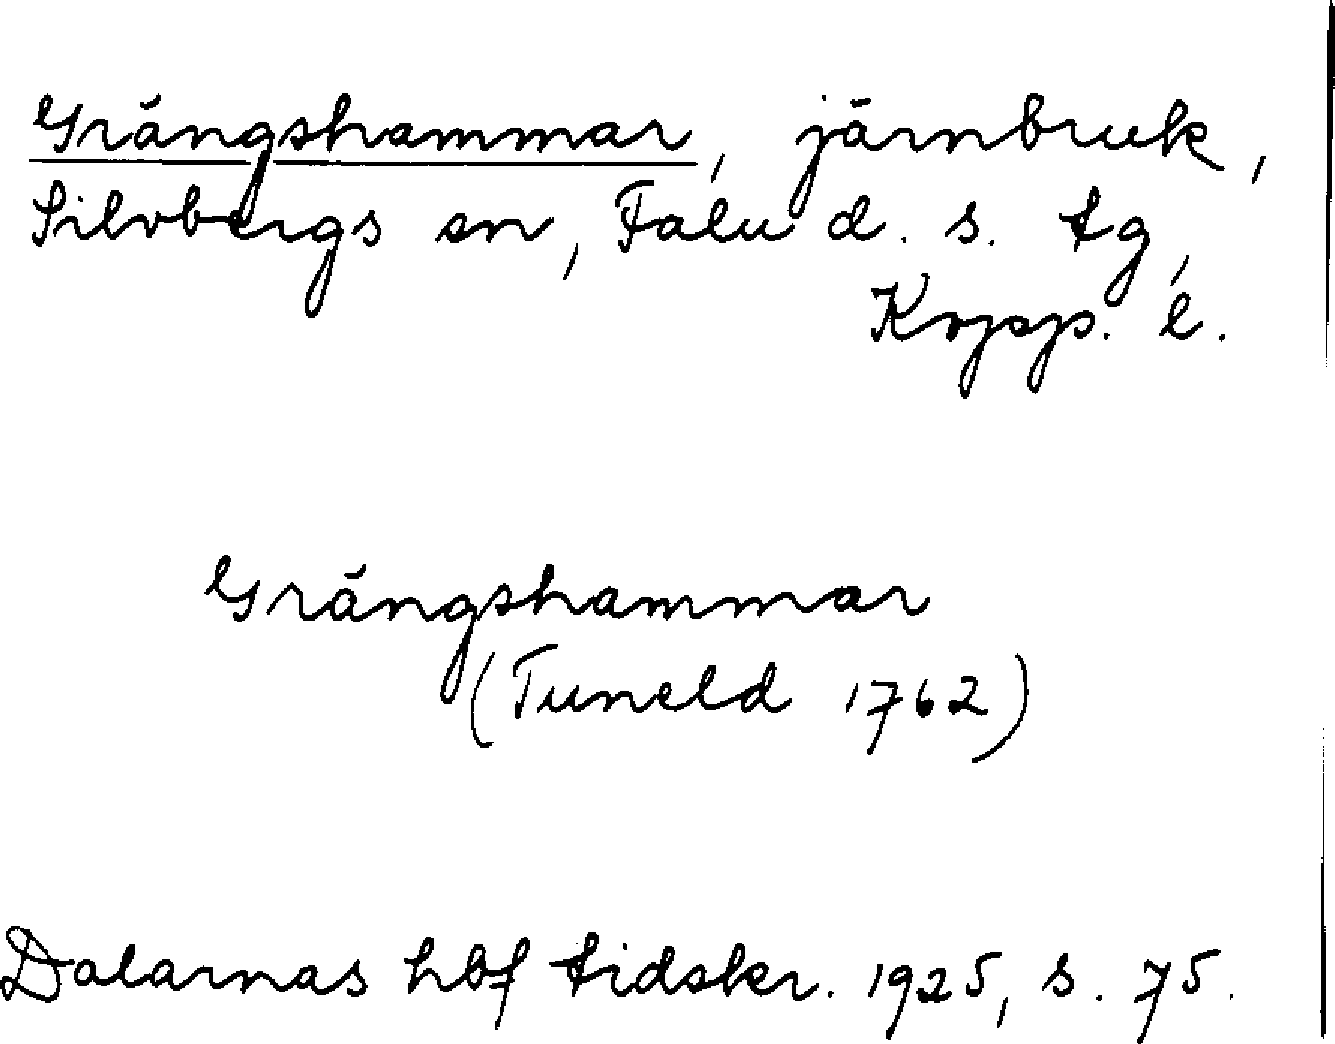 Grängshammar, järnbruk,
Silvbergs sn, Falu d. s. tg,
Kopp. l.
Grängshammar
(Tuneld 1762)
Dalarnas hbf tidskr. 1925, s. 75.